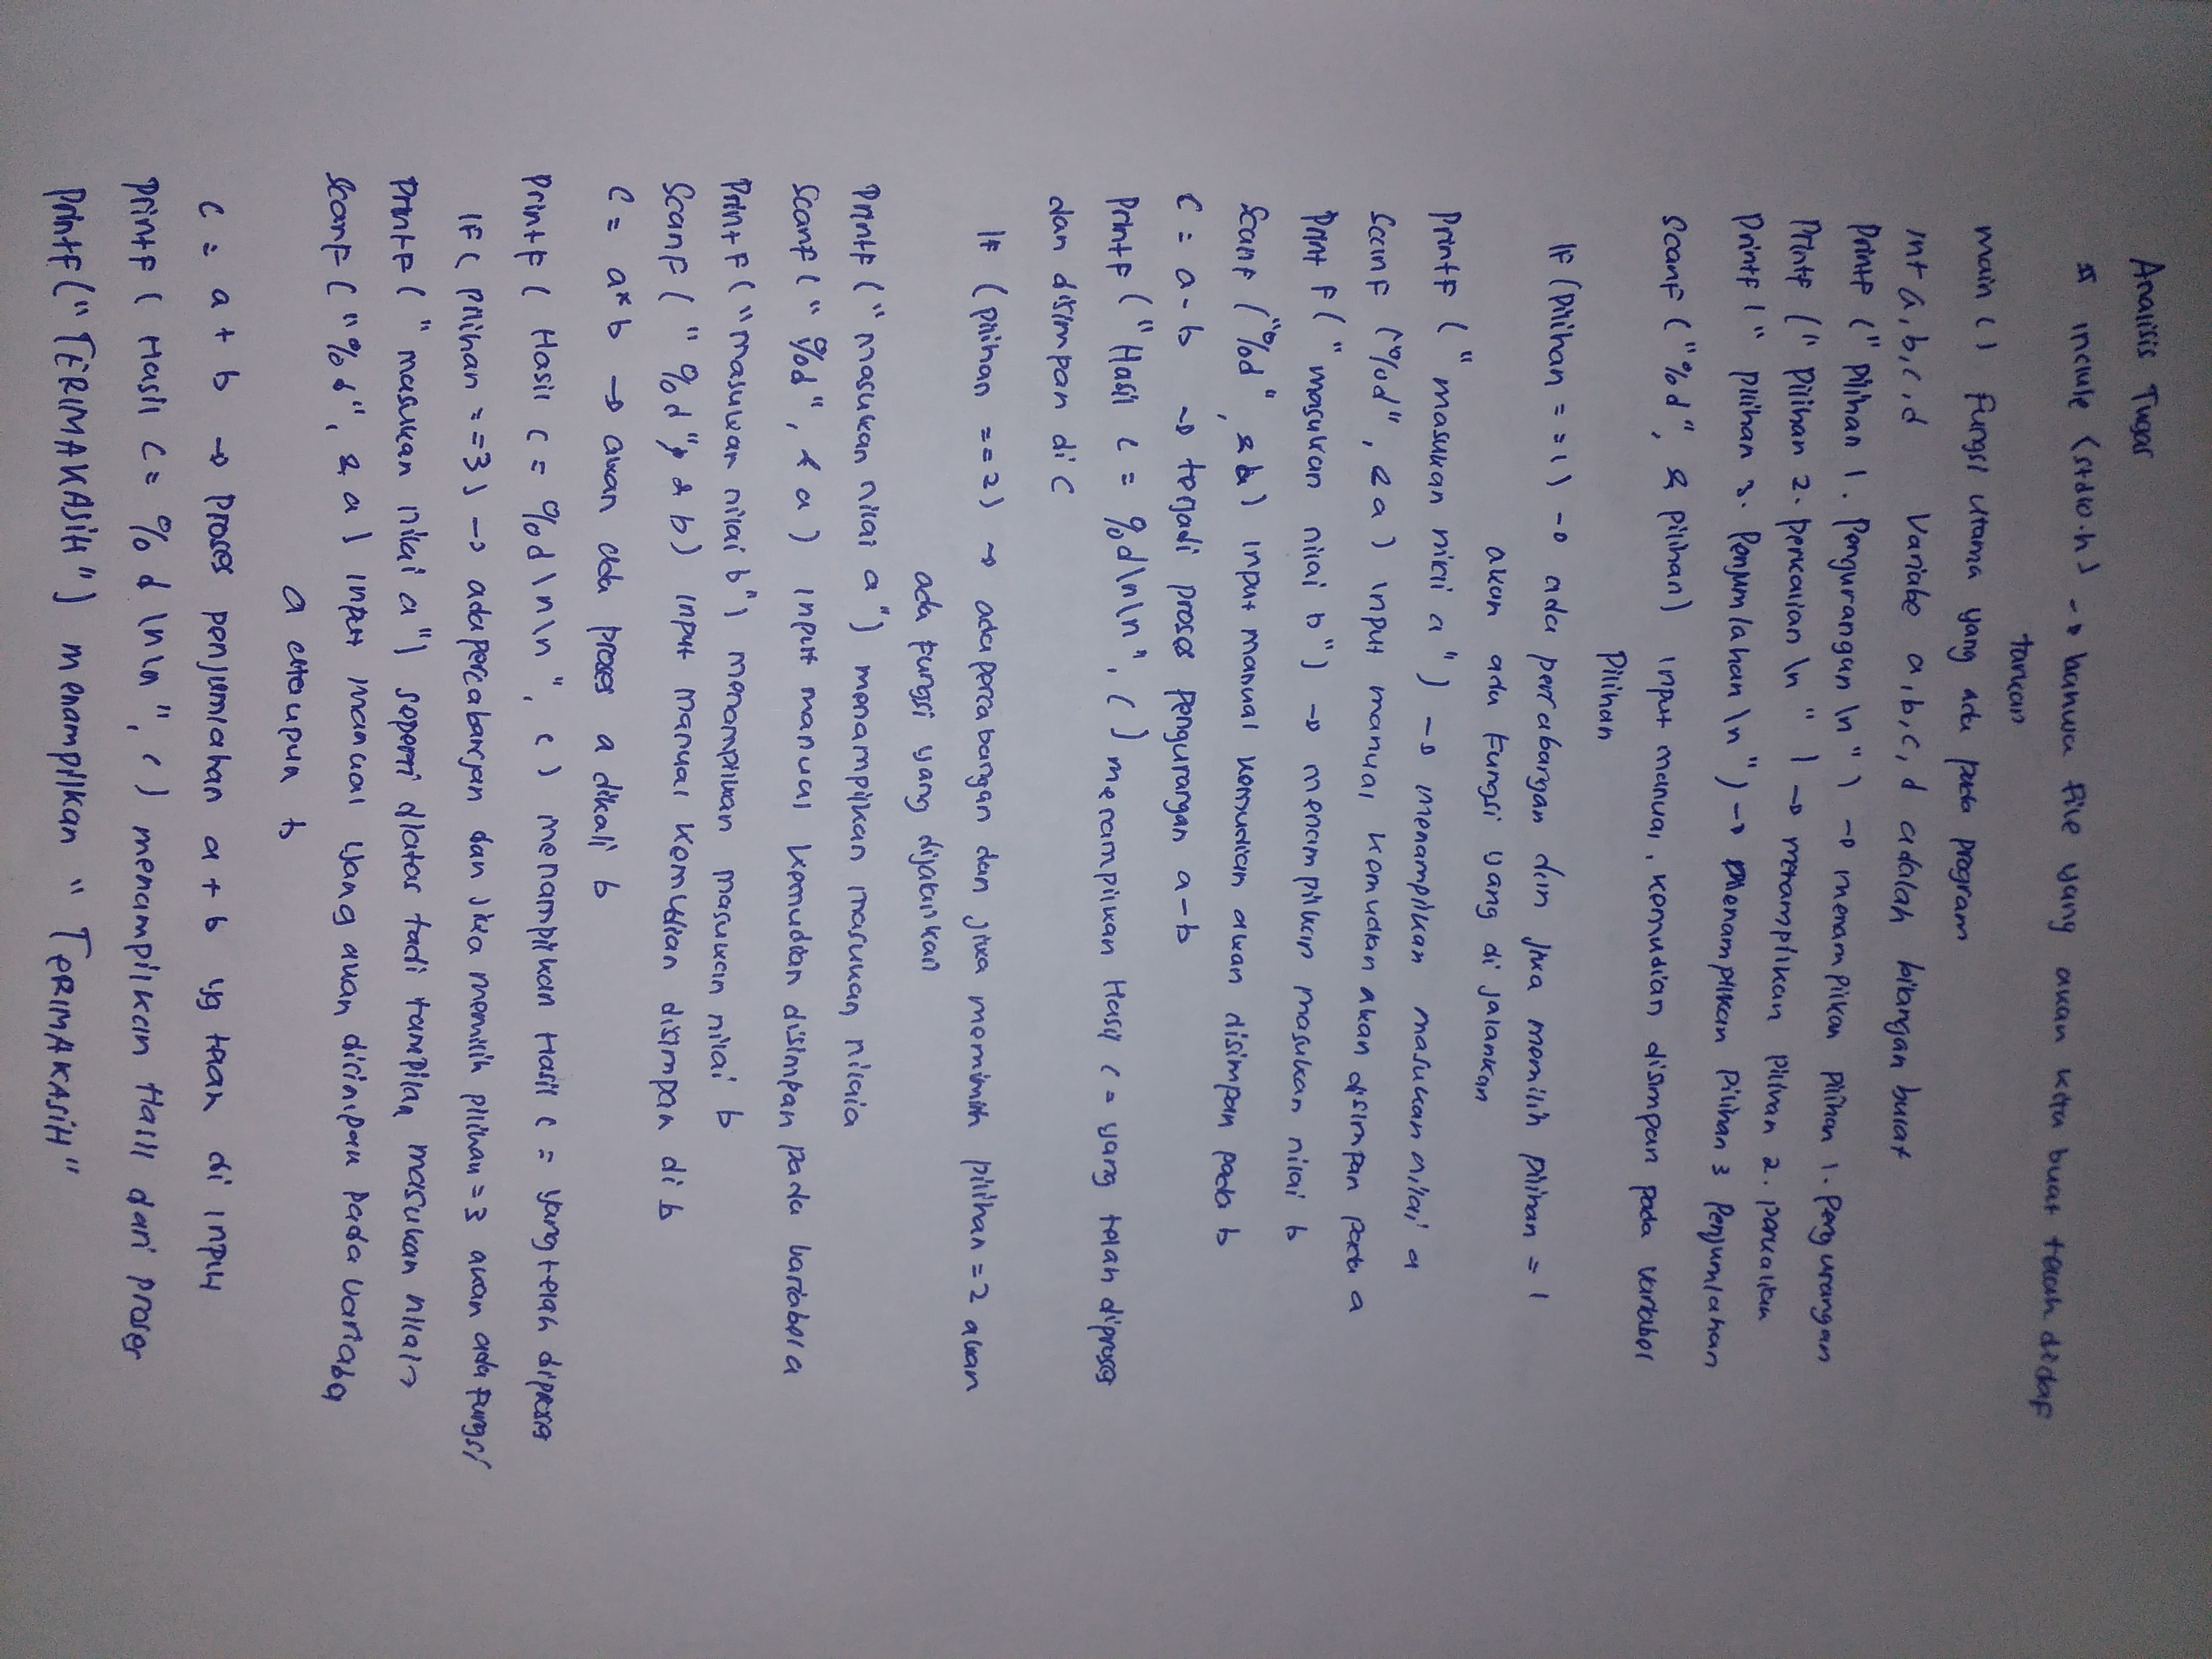 Analisis Tugas
# include (stdio.h) → bahwa file yang akan kita buat telah didaf
tarkan
main () fungsi utama yang ada pada program
int a,b,c,d Variabe a,b,c,d adalah bilangan bulat
Printf (" pilihan 1. Pengurangan \n") → menampilkan pilihan 1. Pengurangan
Printf (" pilihan 2. perkalian \n" ) → menampilkan pilihan 2. perkalian
Printf (" pilihan 3. Penjumlahan \n") → Menampilkan pilihan 3 Penjumlahan
Scanf ("%d", & pilihan) input manual, kemudian disimpan pada variabel
Pilihan
If (pilihan ==1) → ada percabangan dan jika memilih pilihan = 1
akan ada fungsi yang di jalankan
Printf (" masukan nilai a") → menampilkan masukan nilai a
Scanf ("%d", & a) input manual kemudian akan disimpan pada a
Print f (" masukan nilai b") → menampilkan masukan nilai b
Scanf ("%d", &b) input manual kemudian akan disimpan pada b
C = a - b → terjadi proses pengurangan a-b
Printf ("Hasil c = %d\n\n", c) menampilkan Hasil c = yang telah diproses
dan disimpan di c
If (pilihan ==2) → ada percabangan dan jika memimih pilihan =2 akan
ada fungsi yang dijalankan
Printf ("masukan nilai a") menampilkan masukan nilaia
Scanf (" %d", & a) input manual kemudian disimpan pada variabela
Printf ("masukan nilai b") menampilkan masukan nilai b
Scanf (" %d", & b) input manual kemudian disimpan di b
C = a*b → akan ada proses a dikali b
Printf ( Hasil c = %d \n\n", c) menampilkan Hasil c = yang telah diproses
If ( pilihan ==3) → ada percabangan dan jika memilih pilihan =3 akan ada fungsi
Printf (" masukan nilai a") seperti diatas tadi tampilan masukan nilai→
Scanf ("%d", & a) input manual yang akan disimpan pada variabel
a ataupun b
C = a + b → Proses penjumlahan a + b yg telah di input
Printf ( Hasil c = %d \n\n", c) menampilkan Hasil dari proses
Printf ("TERIMAKASIH") menampilkan "TERIMAKASIH"